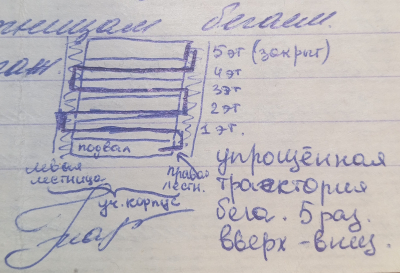 бегаем.
5 эт (закрыт)
4 эт
3 эт
2 эт
1 эт.
подвал
левая лестница
правая лестн.
уч. корпус
упрощённая
траектория
бега. 5 раз.
вверх - вниз.